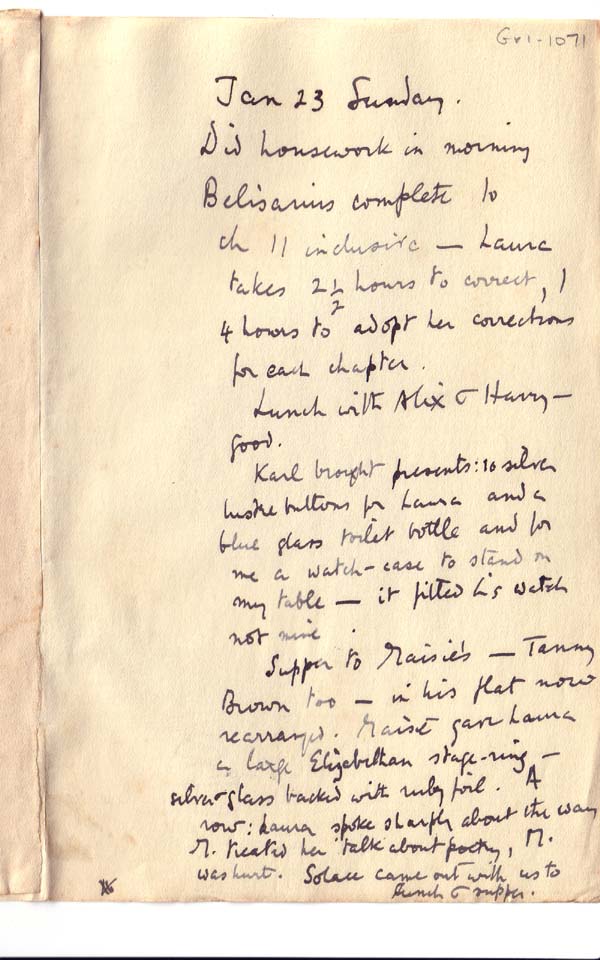 Gr1-1071
Jan 23 Sunday.
Did housework in morning
Belisarius complete to
ch 11 inclusive — Laura
takes 2½ hours to correct, I
4 hours to adopt her corrections
for each chapter.
Lunch with Alix & Harry —
good.
Karl brought presents: 10 silver
lustre buttons for Laura and a
blue glass toilet bottle and for
me a watch-case to stand on
my table — it fitted his watch
not mine.
Supper to Maisie's — Tammy
Brown too — in his flat now
rearranged. Maisie gave Laura
a large Elizabethan stage-ring —
silver-glass backed with ruby foil. A
row: Laura spoke sharply about the way
M. treated her talk about poetry, M.
was hurt. Solace came out with us to
lunch & supper.